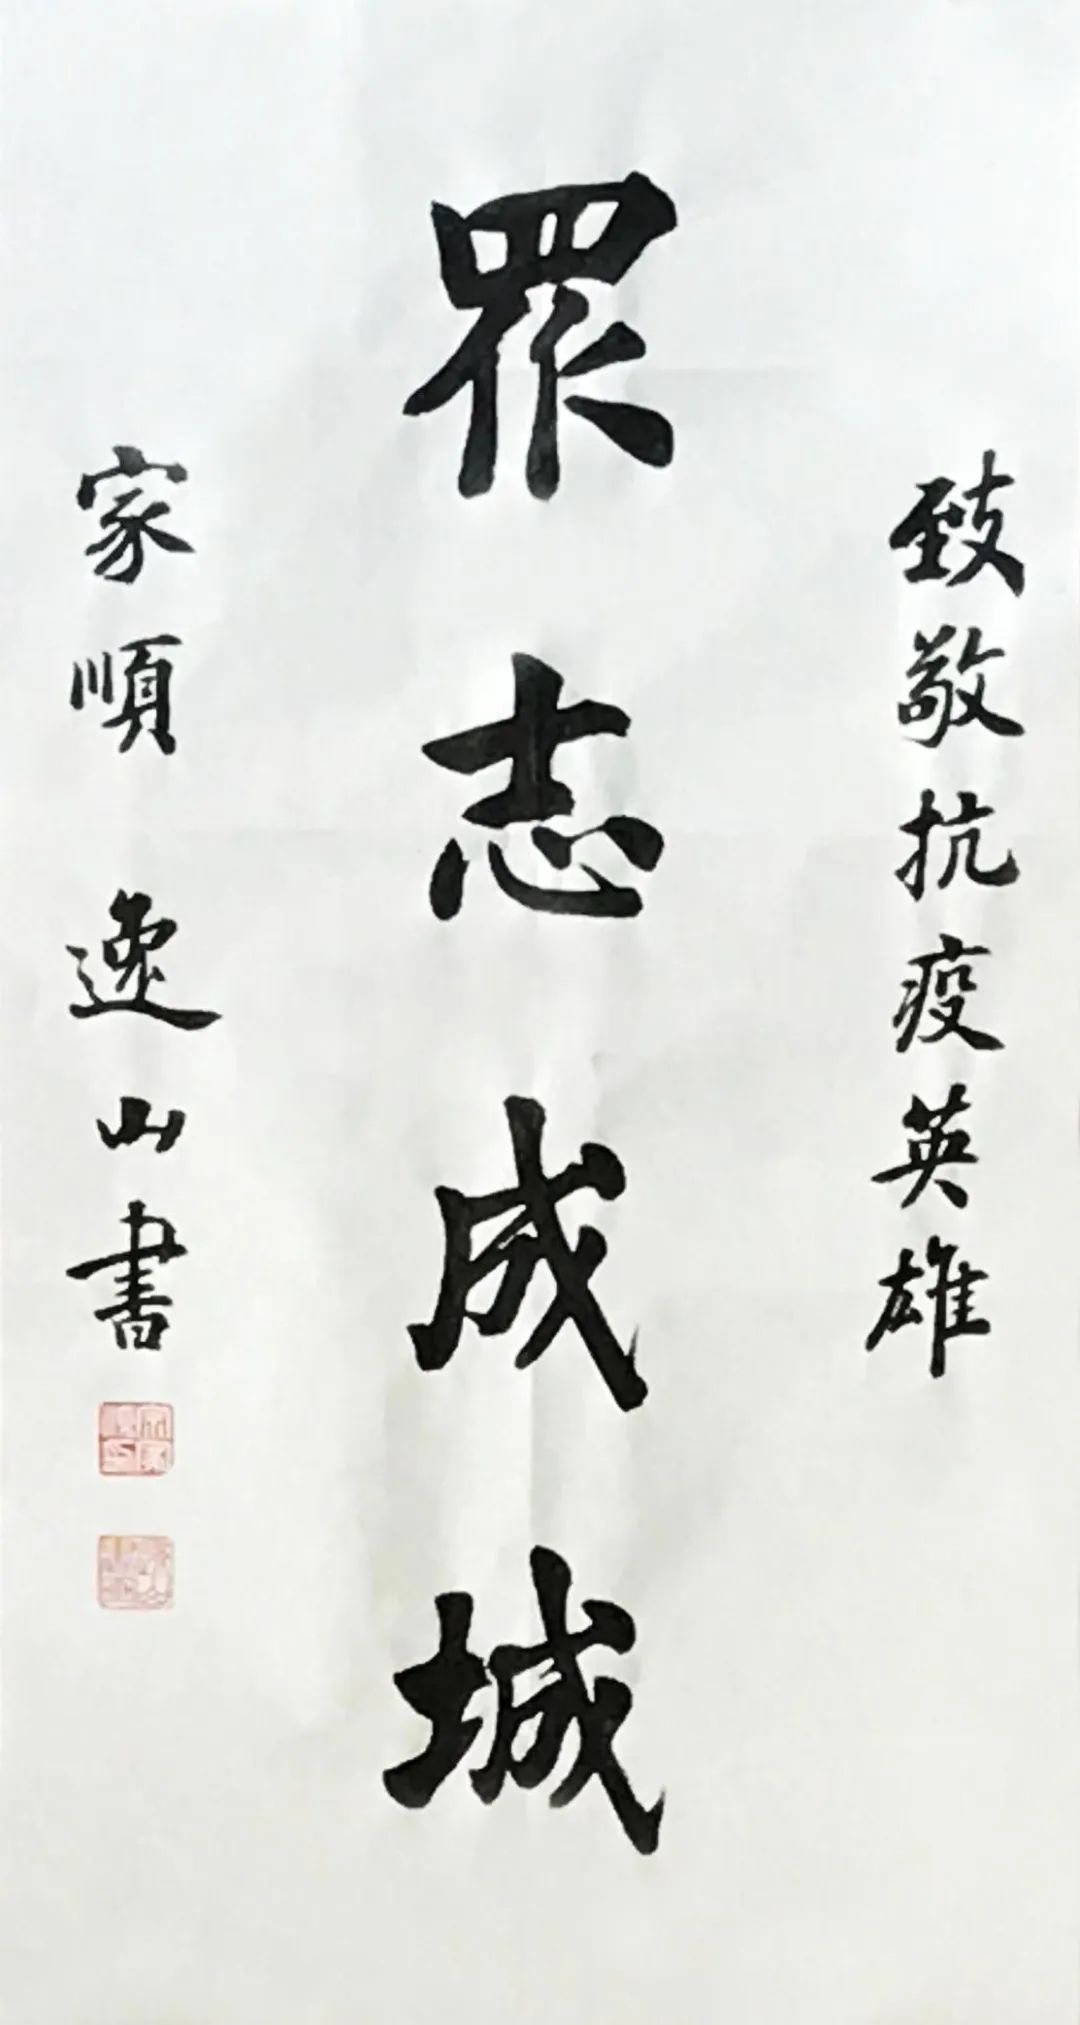 致敬抗疫英雄
眾志成城
家順 逸山書